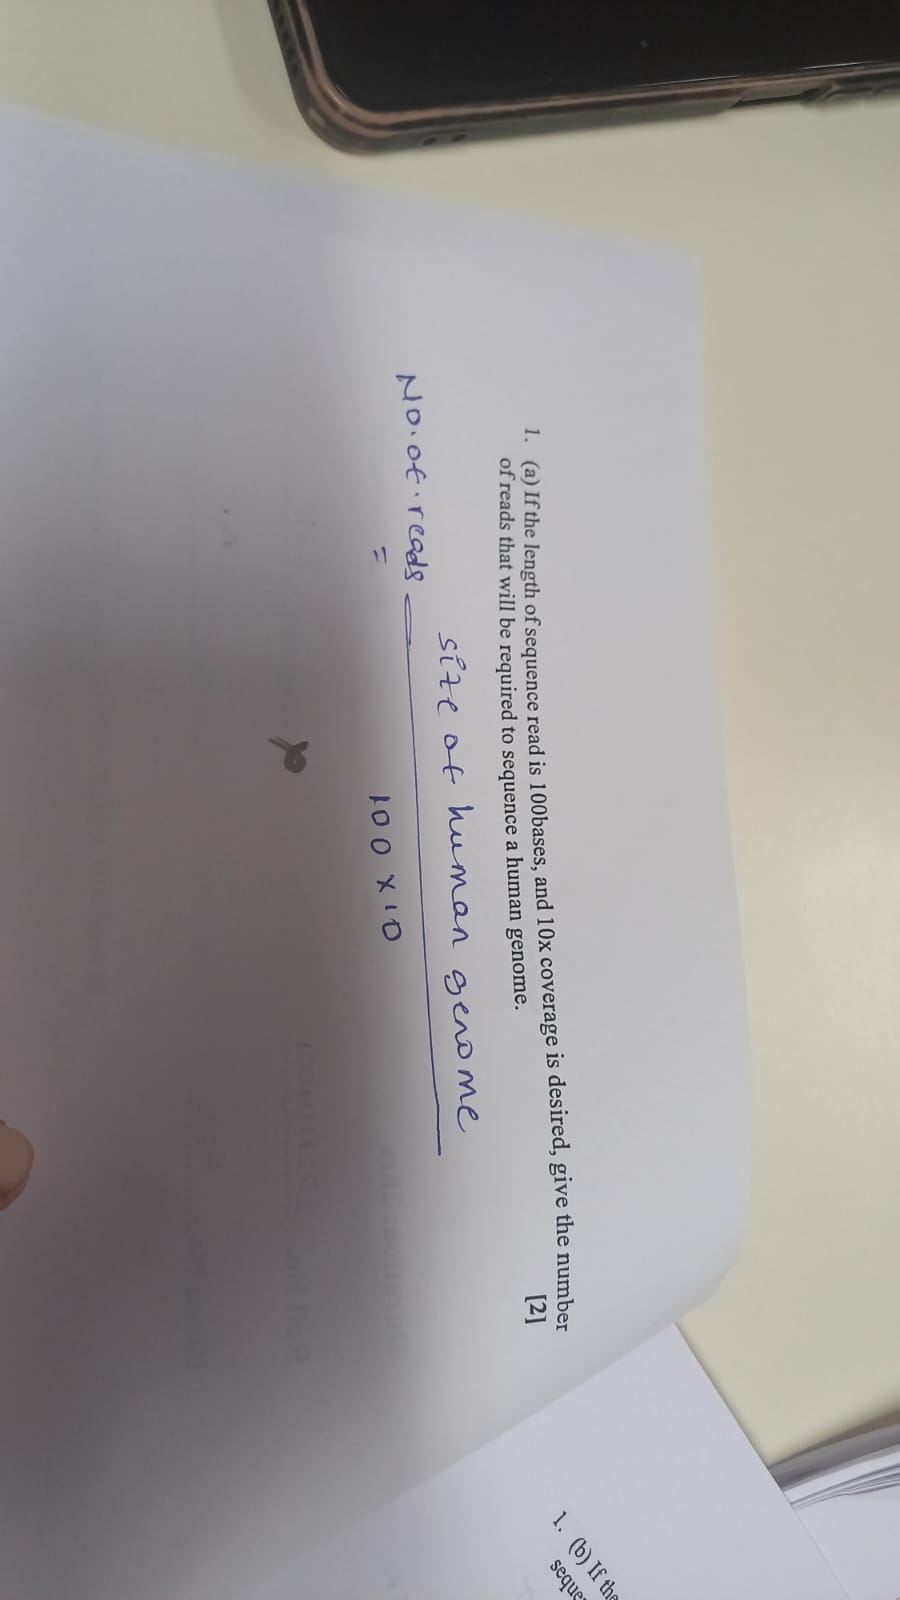 1. (a) If the length of sequence read is 100bases, and 10x coverage is desired, give the number
of reads that will be required to sequence a human genome. [2]
size of human genome
No. of. reads
=
100 x 10
1. (b) If the